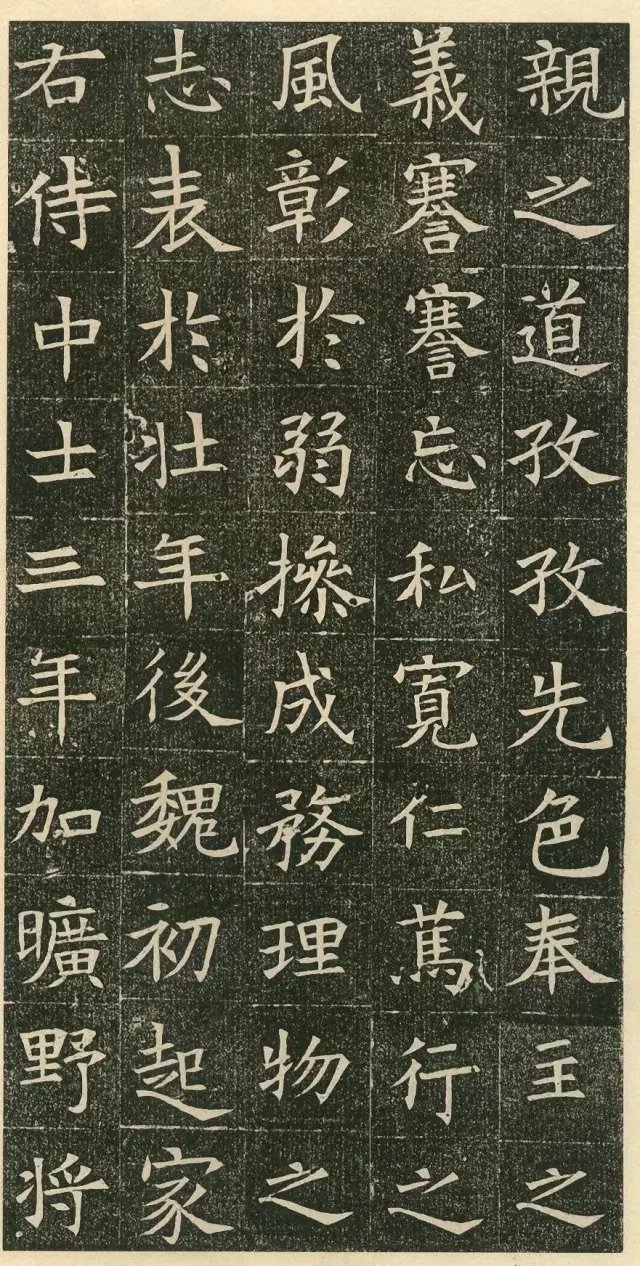 親之道孜孜先色奉主之
義謇謇忘私寛仁篤行之
風彰於弱操成務理物之
志表於壯年後魏初起家
右侍中士三年加曠野將